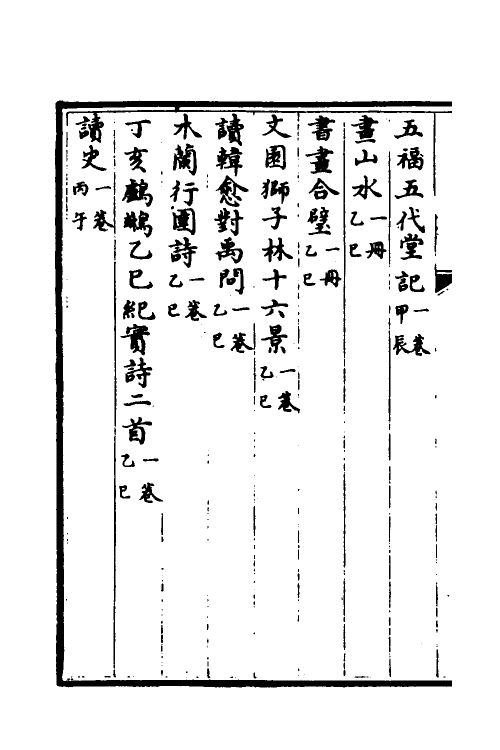 五福五代堂記一卷甲辰
畫山水一冊乙巳
書畫合璧一冊乙巳
文園獅子林十六景一卷乙巳
讀韓愈對禹問一卷乙巳
木蘭行圍詩一卷乙巳
丁亥鸕鶿乙巳紀實詩二首一卷乙巳
讀史一卷丙午